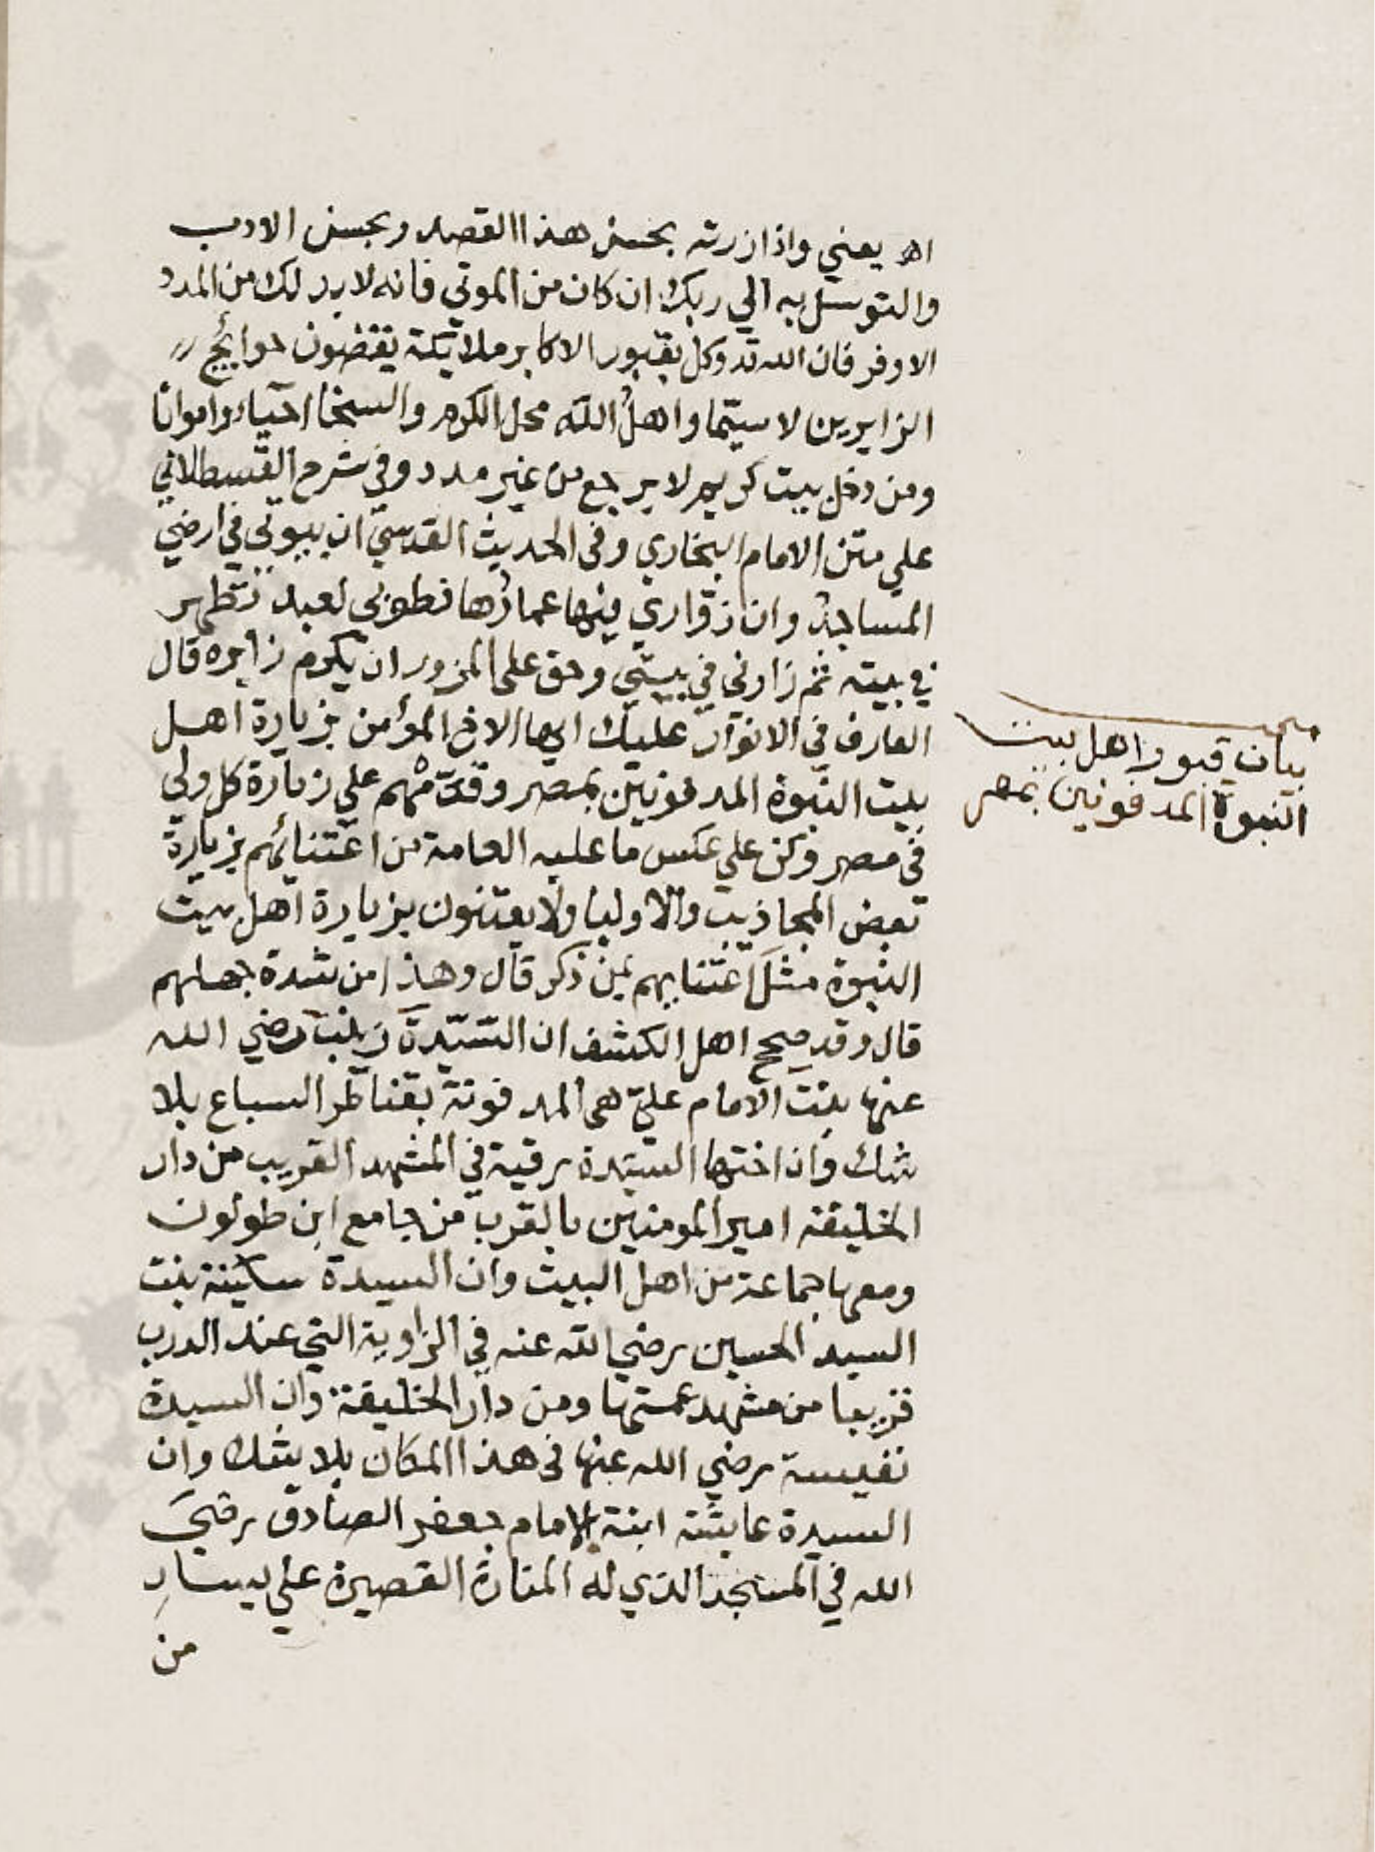 اهـ يعني واذا زرته بحسن هذا القصد وبحسن الادب
والتوسل به الي ربك ان كان من الموتي فانه لابد لك من المدد
الاوفر فان الله قد وكل بقبور الاكابر ملايكة يقضون حوايج
الزايرين لا سيما واهل الله محل الكرم والسخا احياء وامواتا
ومن دخل بيت كريم لا يرجع من غير مدد وفي شرح القسطلاني
علي متن الامام البخاري وفي الحديث القدسي ان بيوتي في ارضي
المساجد وان زواري فيها عمارها فطوبى لعبد تطهر
في بيته ثم زارني في بيتي وحق على المزور ان يكرم زايره قال
العارف في الانوار عليك ايها الاخ المؤمن بزيارة اهل
بيت النبوة المدفونين بمصر وقدمهم علي زيارة كل ولي
في مصر وكن علي عكس ما عليه العامة من اعتنائهم بزيارة
بعض المجاذيب والاوليا ولا يعتنون بزيارة اهل بيت
النبوة مثل اعتنايهم بمن ذكر قال وهذا من شدة جهلهم
قال وقد صحح اهل الكشف ان السيدة زينب رضي الله
عنها بنت الامام علي هي المدفونة بقناطر السباع بلا
شك وان اختها السيدة رقية في المشهد القريب من دار
الخليفة امير المومنين بالقرب من جامع ابن طولون
ومعها جماعة من اهل البيت وان السيدة سكينة بنت
السيد الحسين رضي الله عنه في الزاوية التي عند الدرب
قريبا من مشهد عمتها ومن دار الخليفة وان السيدة
نفيسة رضي الله عنها في هذا المكان بلا شك وان
السيدة عايشة ابنة الامام جعفر الصادق رضي
الله في المسجد الذي له المنارة القصيرة علي يسار
من
بيان قبور اهل بيت
النبوة المدفونين بمصر